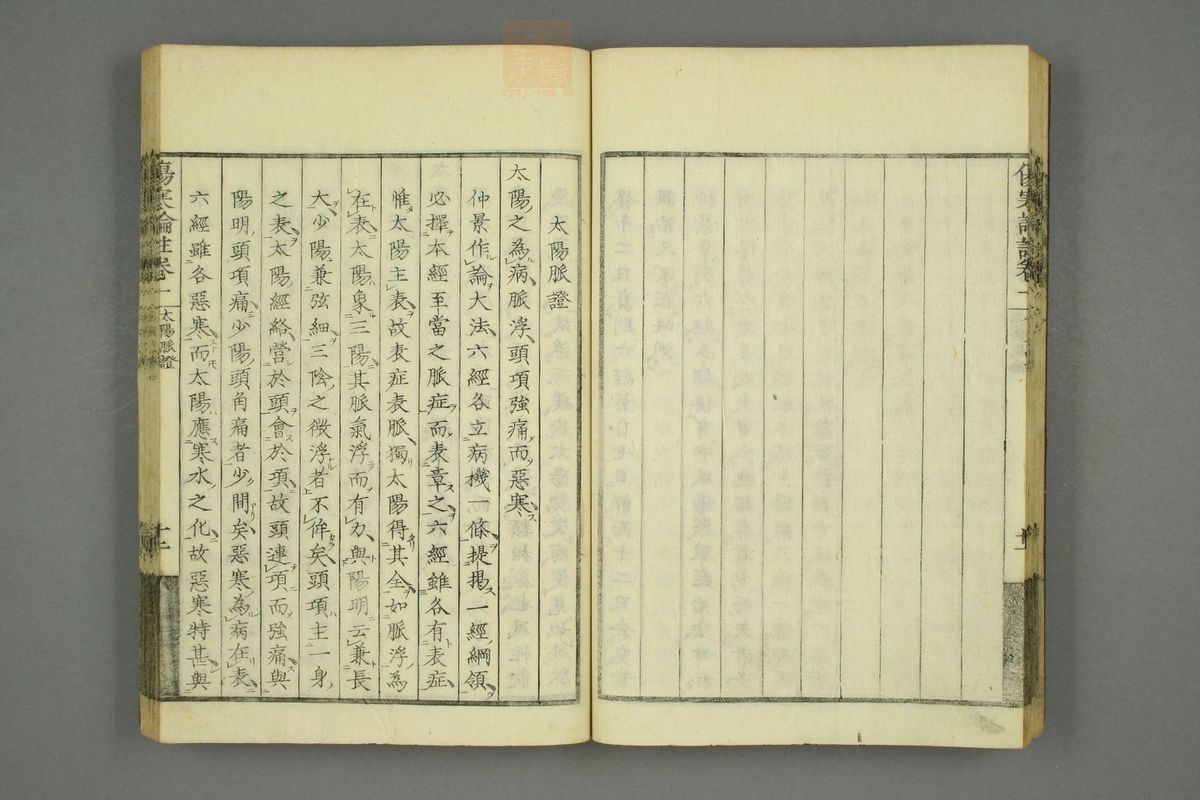 太陽脈證
太陽之為病脈浮頭項強痛而惡寒
仲景作論大法六經各立病機一條提揭一經綱領
必擇本經至當之脈症而表章之六經雖各有表症
惟太陽主表故表症表脈獨太陽得其全如脈浮為
在表太陽象三陽其脈氣浮而有力與陽明云兼長
大少陽兼弦細三陰之微浮者不侔矣頭項主一身
之表太陽經絡營於頭會於項故頭連項而強痛與
陽明頭項痛少陽頭角痛者少間矣惡寒為病在表
六經雖各惡寒而太陽應寒水之化故惡寒特甚與
傷寒論註卷一
太陽脈證
zysj.com.cn